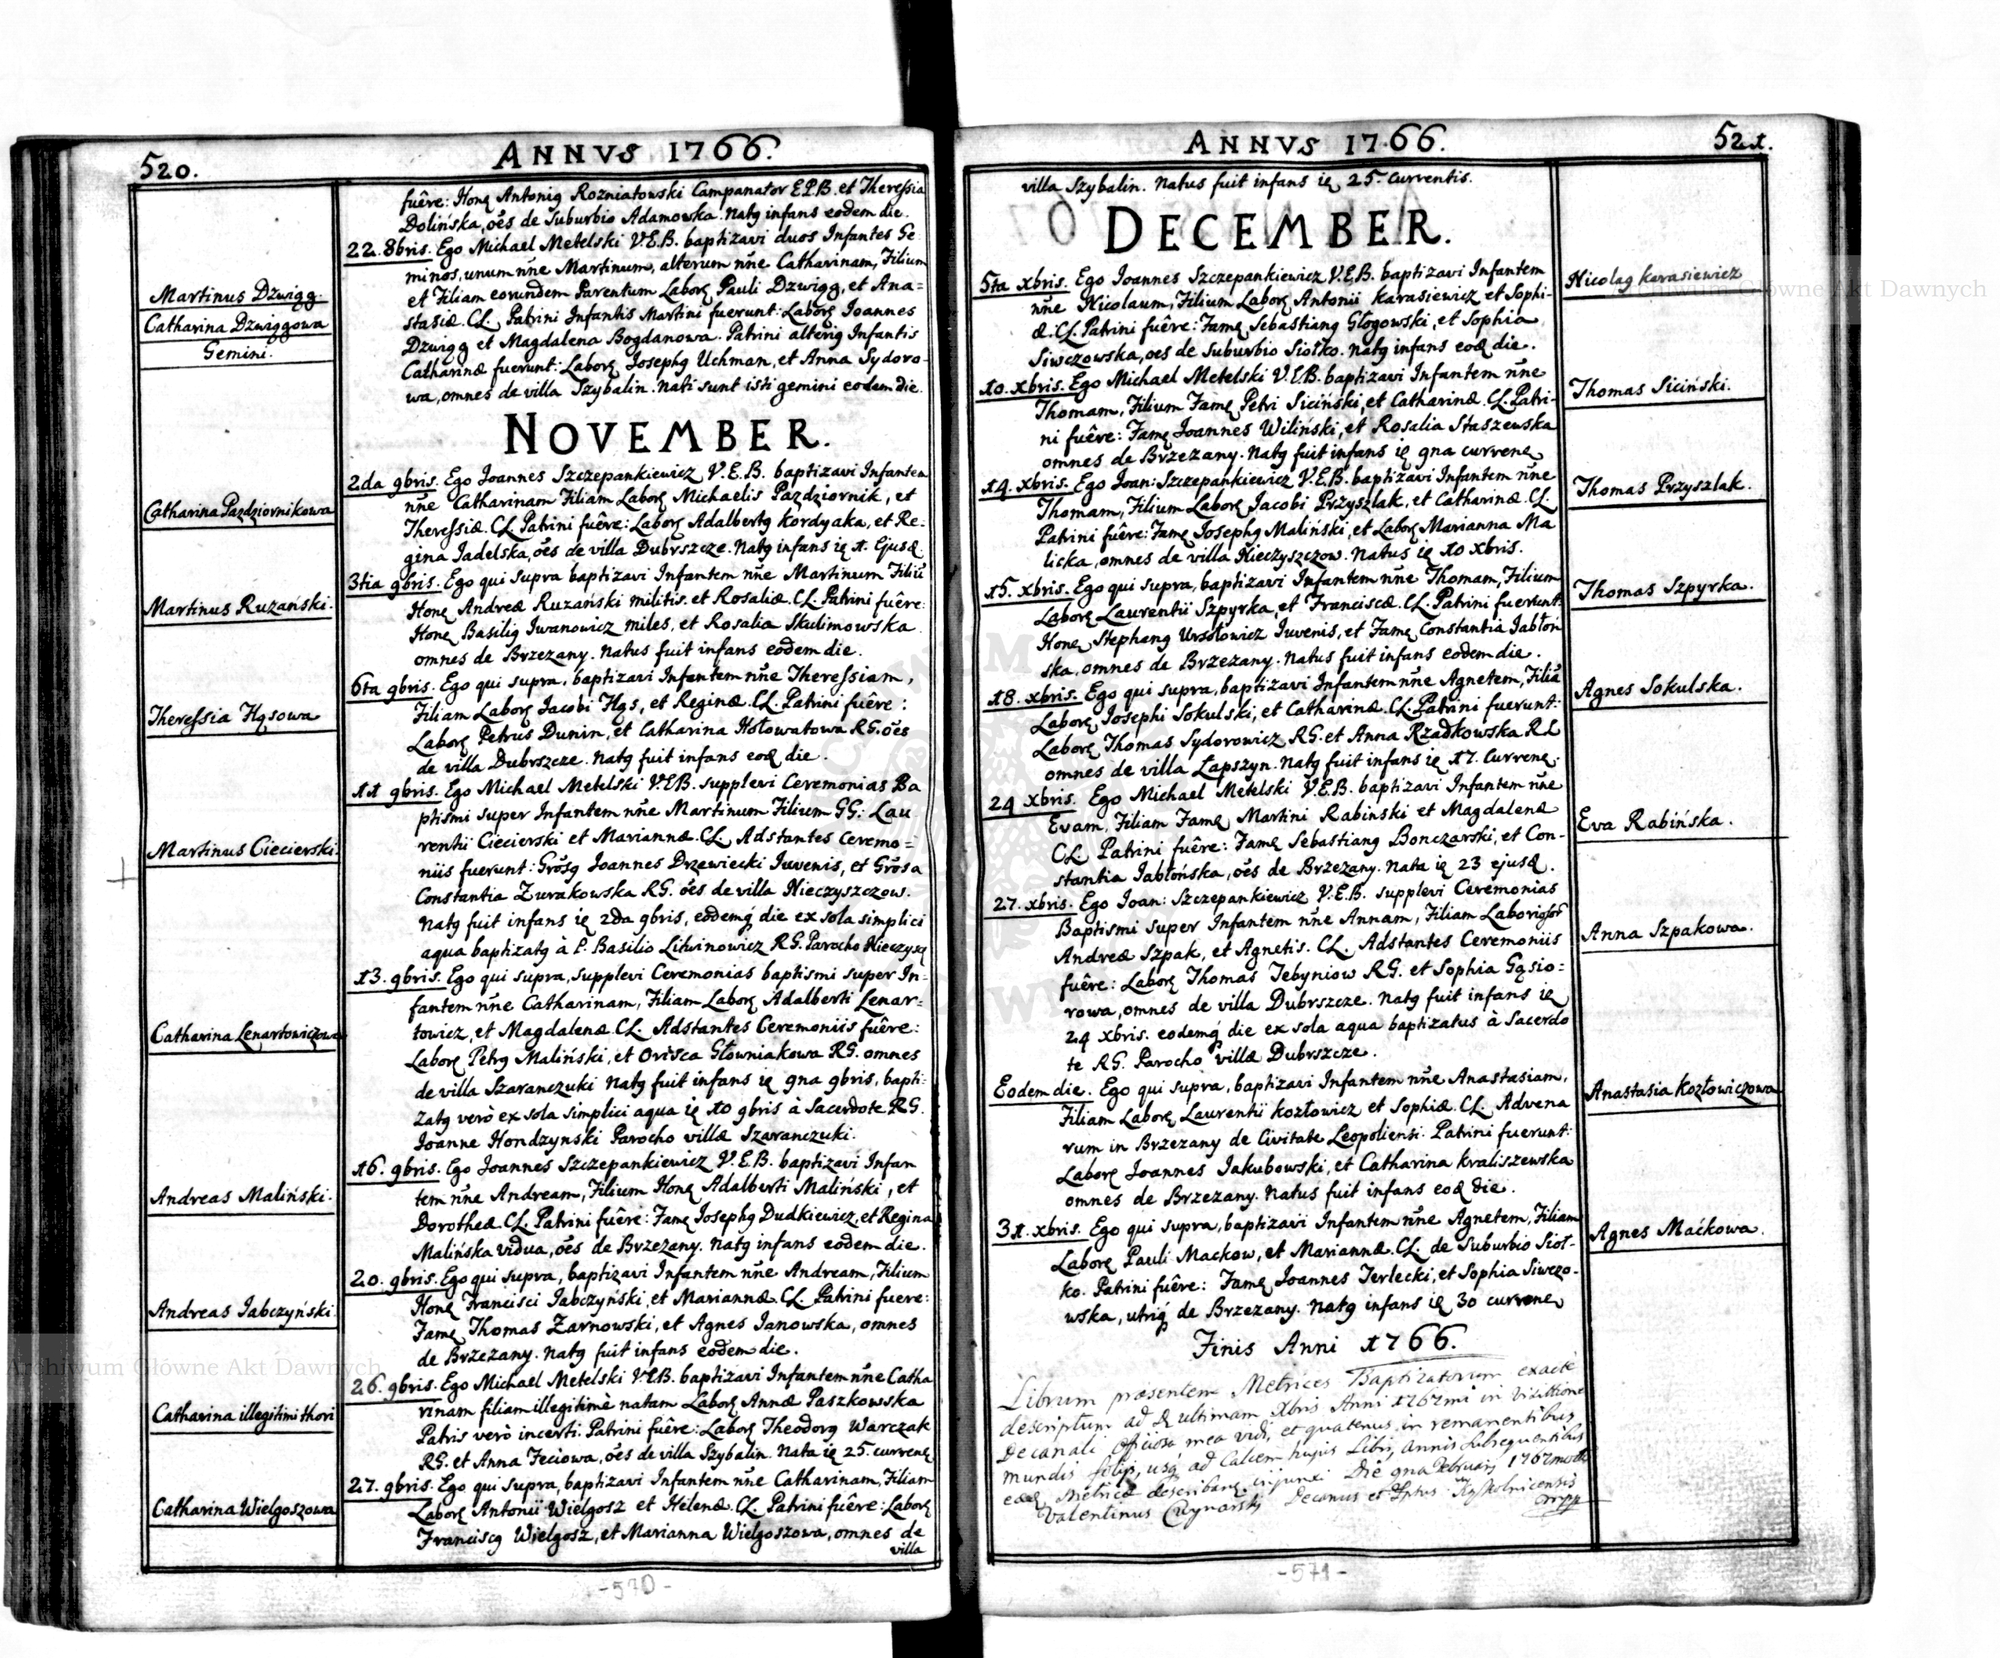 520.
ANNVS 1766.
fuêre: Honę Antonig Rozniatowski Campanator E.P.B. et Theressia
Dolińska, oẽs de Suburbio Adamowka. Natg infans eodem die.
Martinus Dzwigg.
Catharina Dzwiggowa
Gemini.
22. 8bris. Ego Michael Metelski V.E.B. baptizavi duos Infantes Ge
minos, unum nñe Martinum, alterum nñe Catharinam, Filium
et Filiam eorundem Parentum Laborę Pauli Dzwigg, et Ana=
stasiæ. CL. Patrini Infantis Martini fuerunt: Laborę Joannes
Dzwigg et Magdalena Bogdanowa. Patrini alterig Infantis
Catharinæ fuerunt: Laborę Josephg Uchman, et Anna Sydoro-
wa, omnes de villa Szybalin. Nati sunt isti gemini eodem die.
NOVEMBER.
Catharina Pazdziornikowa
2da 9bris. Ego Joannes Szczepankiewicz V.E.B. baptizavi Infantem
nñe Catharinam Filiam Laborę Michaelis Pazdziornik, et
Theressiæ. CL. Patrini fuêre: Laborę Adalbertg Kordyaka, et Re-
gina Jadelska, oẽs de villa Dubrszcze. Natg infans ię 1. Ejusd.
Martinus Ruzański.
3tia 9bris. Ego qui supra baptizavi Infantem nñe Martinum Filiũ
Honę Andreæ Ruzański militis. et Rosaliæ. CL. Patrini fuêre:
Honę Basilig Iwanowicz miles, et Rosalia Skulimowska
omnes de Brzezany. Natus fuit infans eodem die.
Theressia Hąsowa
6ta 9bris. Ego qui supra, baptizavi Infantem nñe Theressiam,
Filiam Laborę Jacobi Hąs, et Reginæ. CL. Patrini fuêre:
Laborę Petrus Dunin, et Catharina Hołowatowa RG. oẽs
de villa Dubrszcze. Natg fuit infans eod die.
Martinus Ciecierski.
11 9bris. Ego Michael Metelski V.E.B. supplevi Ceremonias Ba
ptismi super Infantem nñe Martinum Filium GG: Lau
rentii Ciecierski et Mariannæ. CL. Adstantes Ceremo=
niis fuerunt: Grõsg Joannes Drzewiecki Iuvenis, et Grõsa
Constantia Zurakowska RG. oẽs de villa Nieczyszczow.
Natg fuit infans ię 2da 9bris, eodemq die ex sola simplici
aqua baptizatg à P. Basilio Litwinowicz R.G. Parocho Nieczysą
Catharina Lenartowiczowa
13. 9bris. Ego qui supra, supplevi Ceremonias baptismi super In-
fantem nñe Catharinam, Filiam Laborę Adalberti Lenar-
towicz, et Magdalenæ CL. Adstantes Ceremoniis fuêre:
Laborę Petrg Maliński, et Orisca Głowniakowa RG. omnes
de villa Szaranczuki Natg fuit infans ię 9na 9bris, bapti-
zatg verò ex sola simplici aqua ię 10 9bris à Sacerdote R.G.
Joanne Hondzynski Parocho villæ Szaranczuki.
Andreas Maliński.
16. 9bris. Ego Joannes Szczepankiewicz V.E.B. baptizavi Infan
tem nñe Andream, Filium Honę Adalberti Maliński, et
Dorotheæ. CL. Patrini fuêre: Famę Josephg Dudkiewicz, et Regina
Malińska vidua, oẽs de Brzezany. Natg infans eodem die.
Andreas Jabczyński.
20. 9bris. Ego qui supra, baptizavi Infantem nñe Andream, Filium
Honę Francisci Jabczyński, et Mariannæ. CL. Patrini fuere:
Famę Thomas Zarnowski, et Agnes Janowska, omnes
de Brzezany. Natg fuit infans eodem die.
Catharina illegitimi thori
26. 9bris. Ego Michael Metelski V.E.B. baptizavi Infantem nñe Catha
rinam filiam illegitimè natam Laborę Annæ Paszkowska
Patris verò incerti. Patrini fuêre: Laborę Theodorg Warczak
RG. et Anna Feciowa, oẽs de villa Szybalin. Nata ię 25. currenę
Catharina Wielgoszowa
27. 9bris. Ego qui supra, baptizavi Infantem nñe Catharinam, Filiam
Laborę Antonii Wielgosz et Helenæ. CL. Patrini fuêre: Laborę
Franciscg Wielgosz, et Marianna Wielgoszowa, omnes de
villa
-570-
ANNVS 1766.
521.
villa Szybalin. Natus fuit infans ię 25. currentis.
DECEMBER.
5ta xbris. Ego Joannes Szczepankiewicz V.E.B. baptizavi Infantem
nñe Nicolaum, Filium Laborę Antonii Karasiewicz et Sophi-
æ. CL. Patrini fuêre: Famę Sebastiang Głogowski, et Sophia
Siwczowska, oes de Suburbio Siołko. Natg infans eod die.
Nicolag Karasiewicz
10. xbris. Ego Michael Metelski V.E.B. baptizavi Infantem nñe
Thomam, Filium Famę Petri Siciński, et Catharinæ. CL. Patri-
ni fuêre: Famę Joannes Wiliński, et Rosalia Staszewska
omnes de Brzezany. Natg fuit infans ię 9na currenę
Thomas Siciński.
14. xbris. Ego Joan: Szczepankiewicz V.E.B. baptizavi Infantem nñe
Thomam, Filium Laborę Jacobi Przyszlak, et Catharinæ. CL.
Patrini fuêre: Famę Josephg Maliński, et Laborę Marianna Ma
licka, omnes de villa Nieczyszczow. Natus ię 10 xbris.
Thomas Przyszlak.
15. xbris. Ego qui supra, baptizavi Infantem nñe Thomam, Filium
Laborę Laurentii Szpyrka, et Franciscæ. CL. Patrini fuerunt:
Honę Stephang Ursołowicz Iuvenis, et Famę Constantia Jabłoń
ska, omnes de Brzezany. Natus fuit infans eodem die.
Thomas Szpyrka.
18. xbris. Ego qui supra, baptizavi Infantem nñe Agnetem, Filiã
Laborę Josephi Sokulski, et Catharinæ. CL. Patrini fuerunt:
Laborę Thomas Sydorowicz R.G. et Anna Rzadkowska R.L
omnes de villa Łapszyn. Natg fuit infans ię 17. Currenę.
Agnes Sokulska.
24 xbris. Ego Michael Metelski V.E.B. baptizavi Infantem nñe
Evam, Filiam Famę Martini Rabinski et Magdalenæ
CL. Patrini fuêre: Famę Sebastiang Bonczarski, et Con-
stantia Jabłońska, oẽs de Brzezany. Nata ię 23 ejusd.
Eva Rabińska.
27. xbris. Ego Joan: Szczepankiewicz V.E.B. supplevi Ceremonias
Baptismi super Infantem nñe Annam, Filiam Laborigsor
Andreæ Szpak, et Agnetis. CL. Adstantes Ceremoniis
fuêre: Laborę Thomas Jebyniow R.G. et Sophia Gąsio=
rowa, omnes de villa Dubrszcze. Natg fuit infans ię
24 xbris. eodemq die ex sola aqua baptizatus à Sacerdo
te R.G. Parocho villæ Dubrszcze.
Anna Szpakowa.
Eodem die. Ego qui supra, baptizavi Infantem nñe Anastasiam,
Filiam Laborę Laurentii Kozłowicz et Sophiæ. CL. Advena
rum in Brzezany de Civitate Leopoliensi. Patrini fuerunt:
Laborę Joannes Jakubowski, et Catharina Kraliszewska
omnes de Brzezany. Natus fuit infans eod die.
Anastasia Kozłowiczowa
31. xbris. Ego qui supra, baptizavi Infantem nñe Agnetem, Filiam
Laborę Pauli Mackow, et Mariannæ. CL. de Suburbio Sioł-
ko. Patrini fuêre: Famę Joannes Terlecki, et Sophia Siwczo-
wska, utriq de Brzezany. Natg infans ię 30 currenę
Agnes Maćkowa.
Finis Anni 1766.
Librum præsentem Metrices Baptizatorum exacte
descriptum ad ultimam Xbris Anni 1767mi in Visittione
Decanali Officiosa mea vidi, et quatenus in remanentibus
mundis folijs, usq ad Calcem hujus Libri, annis subsequentibus
eadę Metrica describanę injunxi Die 9na Februarij 1767mo
Valentinus Decanus et
-571-
Archiwum Główne Akt Dawnych
Archiwum Główne Akt Dawnych